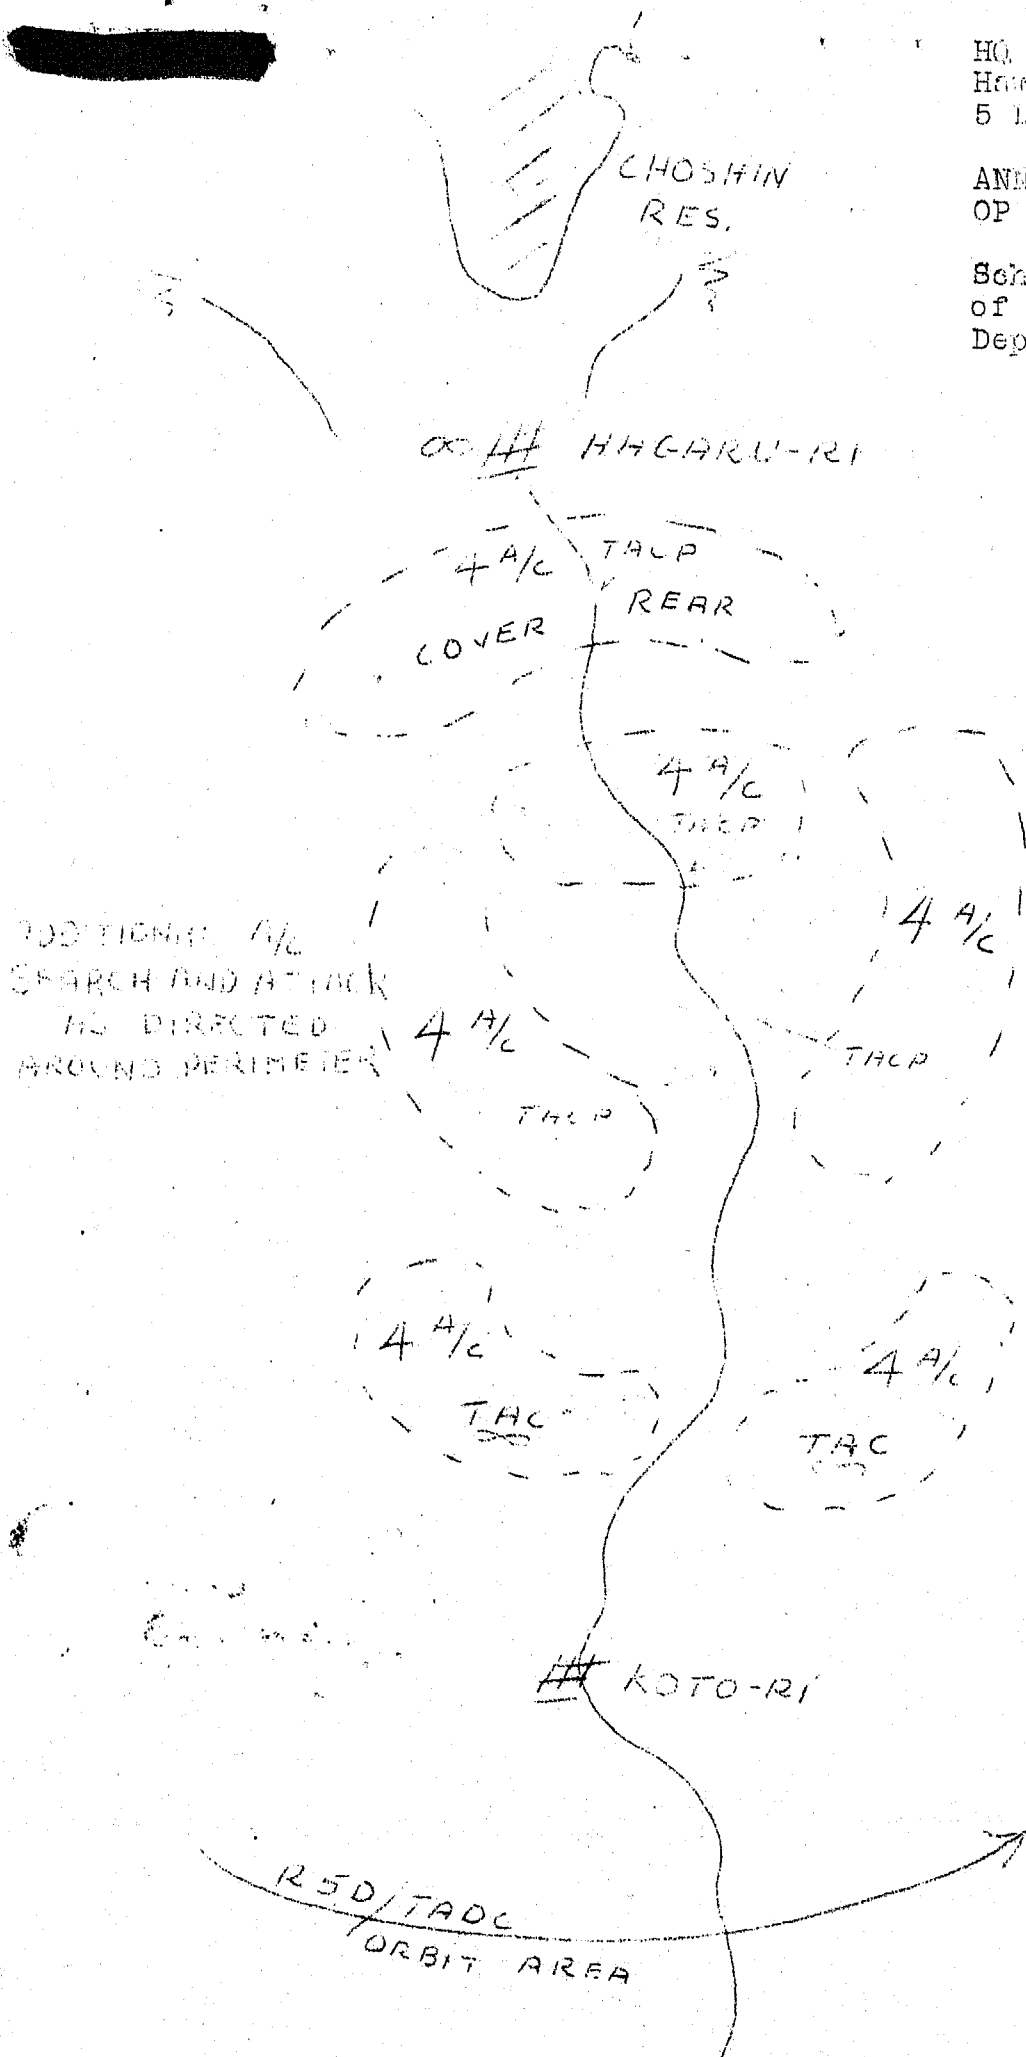 HQ
5
ANN
OP
Sch
of
Dep
CHOSHIN
RES.
HAGARU-RI
4 A/C TACP
COVER REAR
4 A/C
TACP
4 A/C
ADDITIONAL A/C
SEARCH AND ATTACK
AS DIRECTED
AROUND PERIMETER
4 A/C
TACP
TACP
4 A/C
TAC
4 A/C
TAC
KOTO-RI
R5D/TADC
ORBIT AREA